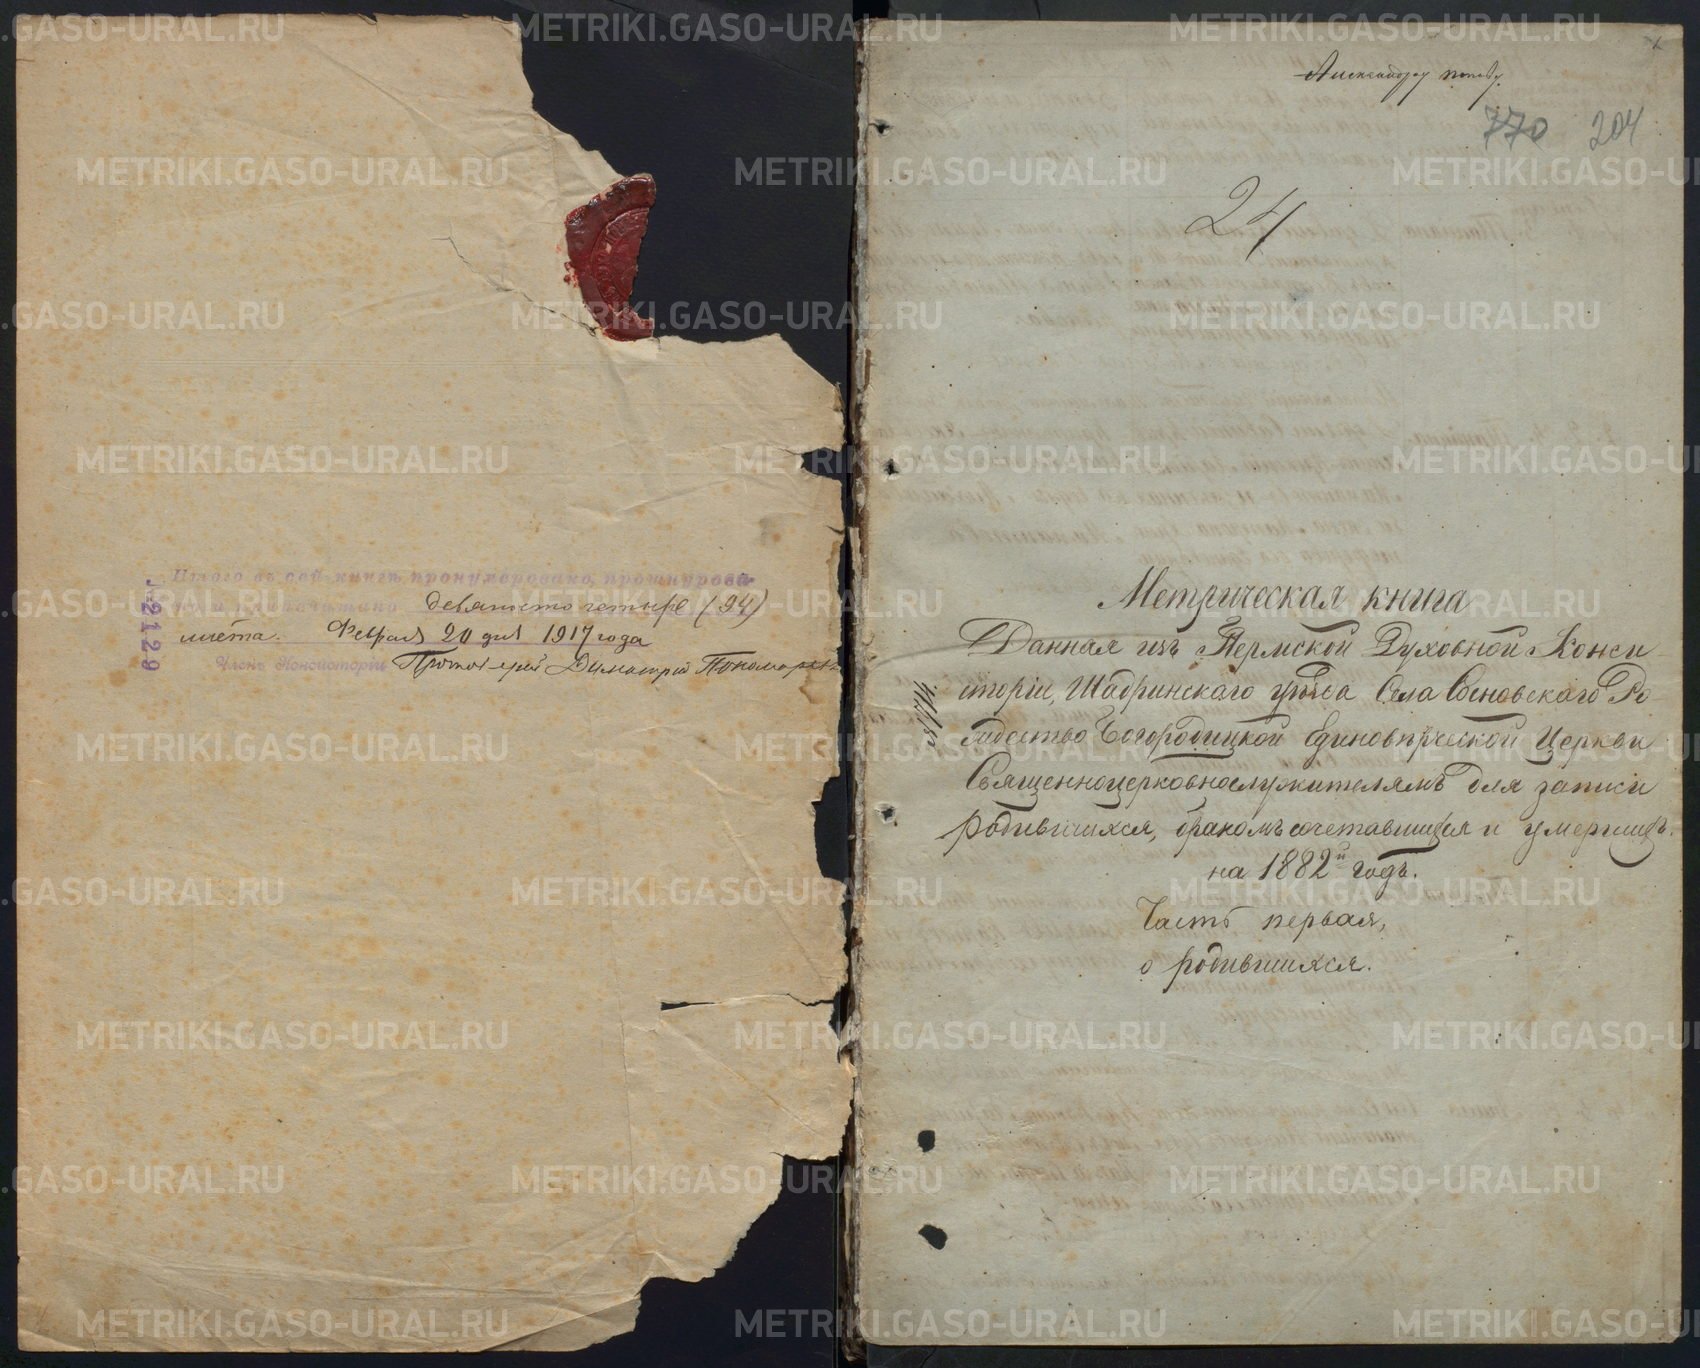 Итого въ сей книгѣ пронумеровано, прошнурова-
но и припечатано девяносто четыре (94)
листа. Февраля 20 дня 1917 года
Членъ Консисторіи Протоіерей Димитрій Пономарев
№ 2129
Александру попову
770 204
24
Метрическая книга
Данная изъ Пермской Духовной Конси
сторіи, Шадринскаго уѣзда Села Сосновскаго Ро
ждество Богородицкой Единовѣрческой Церкви
Священноцерковнослужителямъ для записи
родившихся, бракомъ сочетавшихся и умершихъ.
на 1882й годъ.
Часть первая,
о родившихся.
METRIKI.GASO-URAL.RU